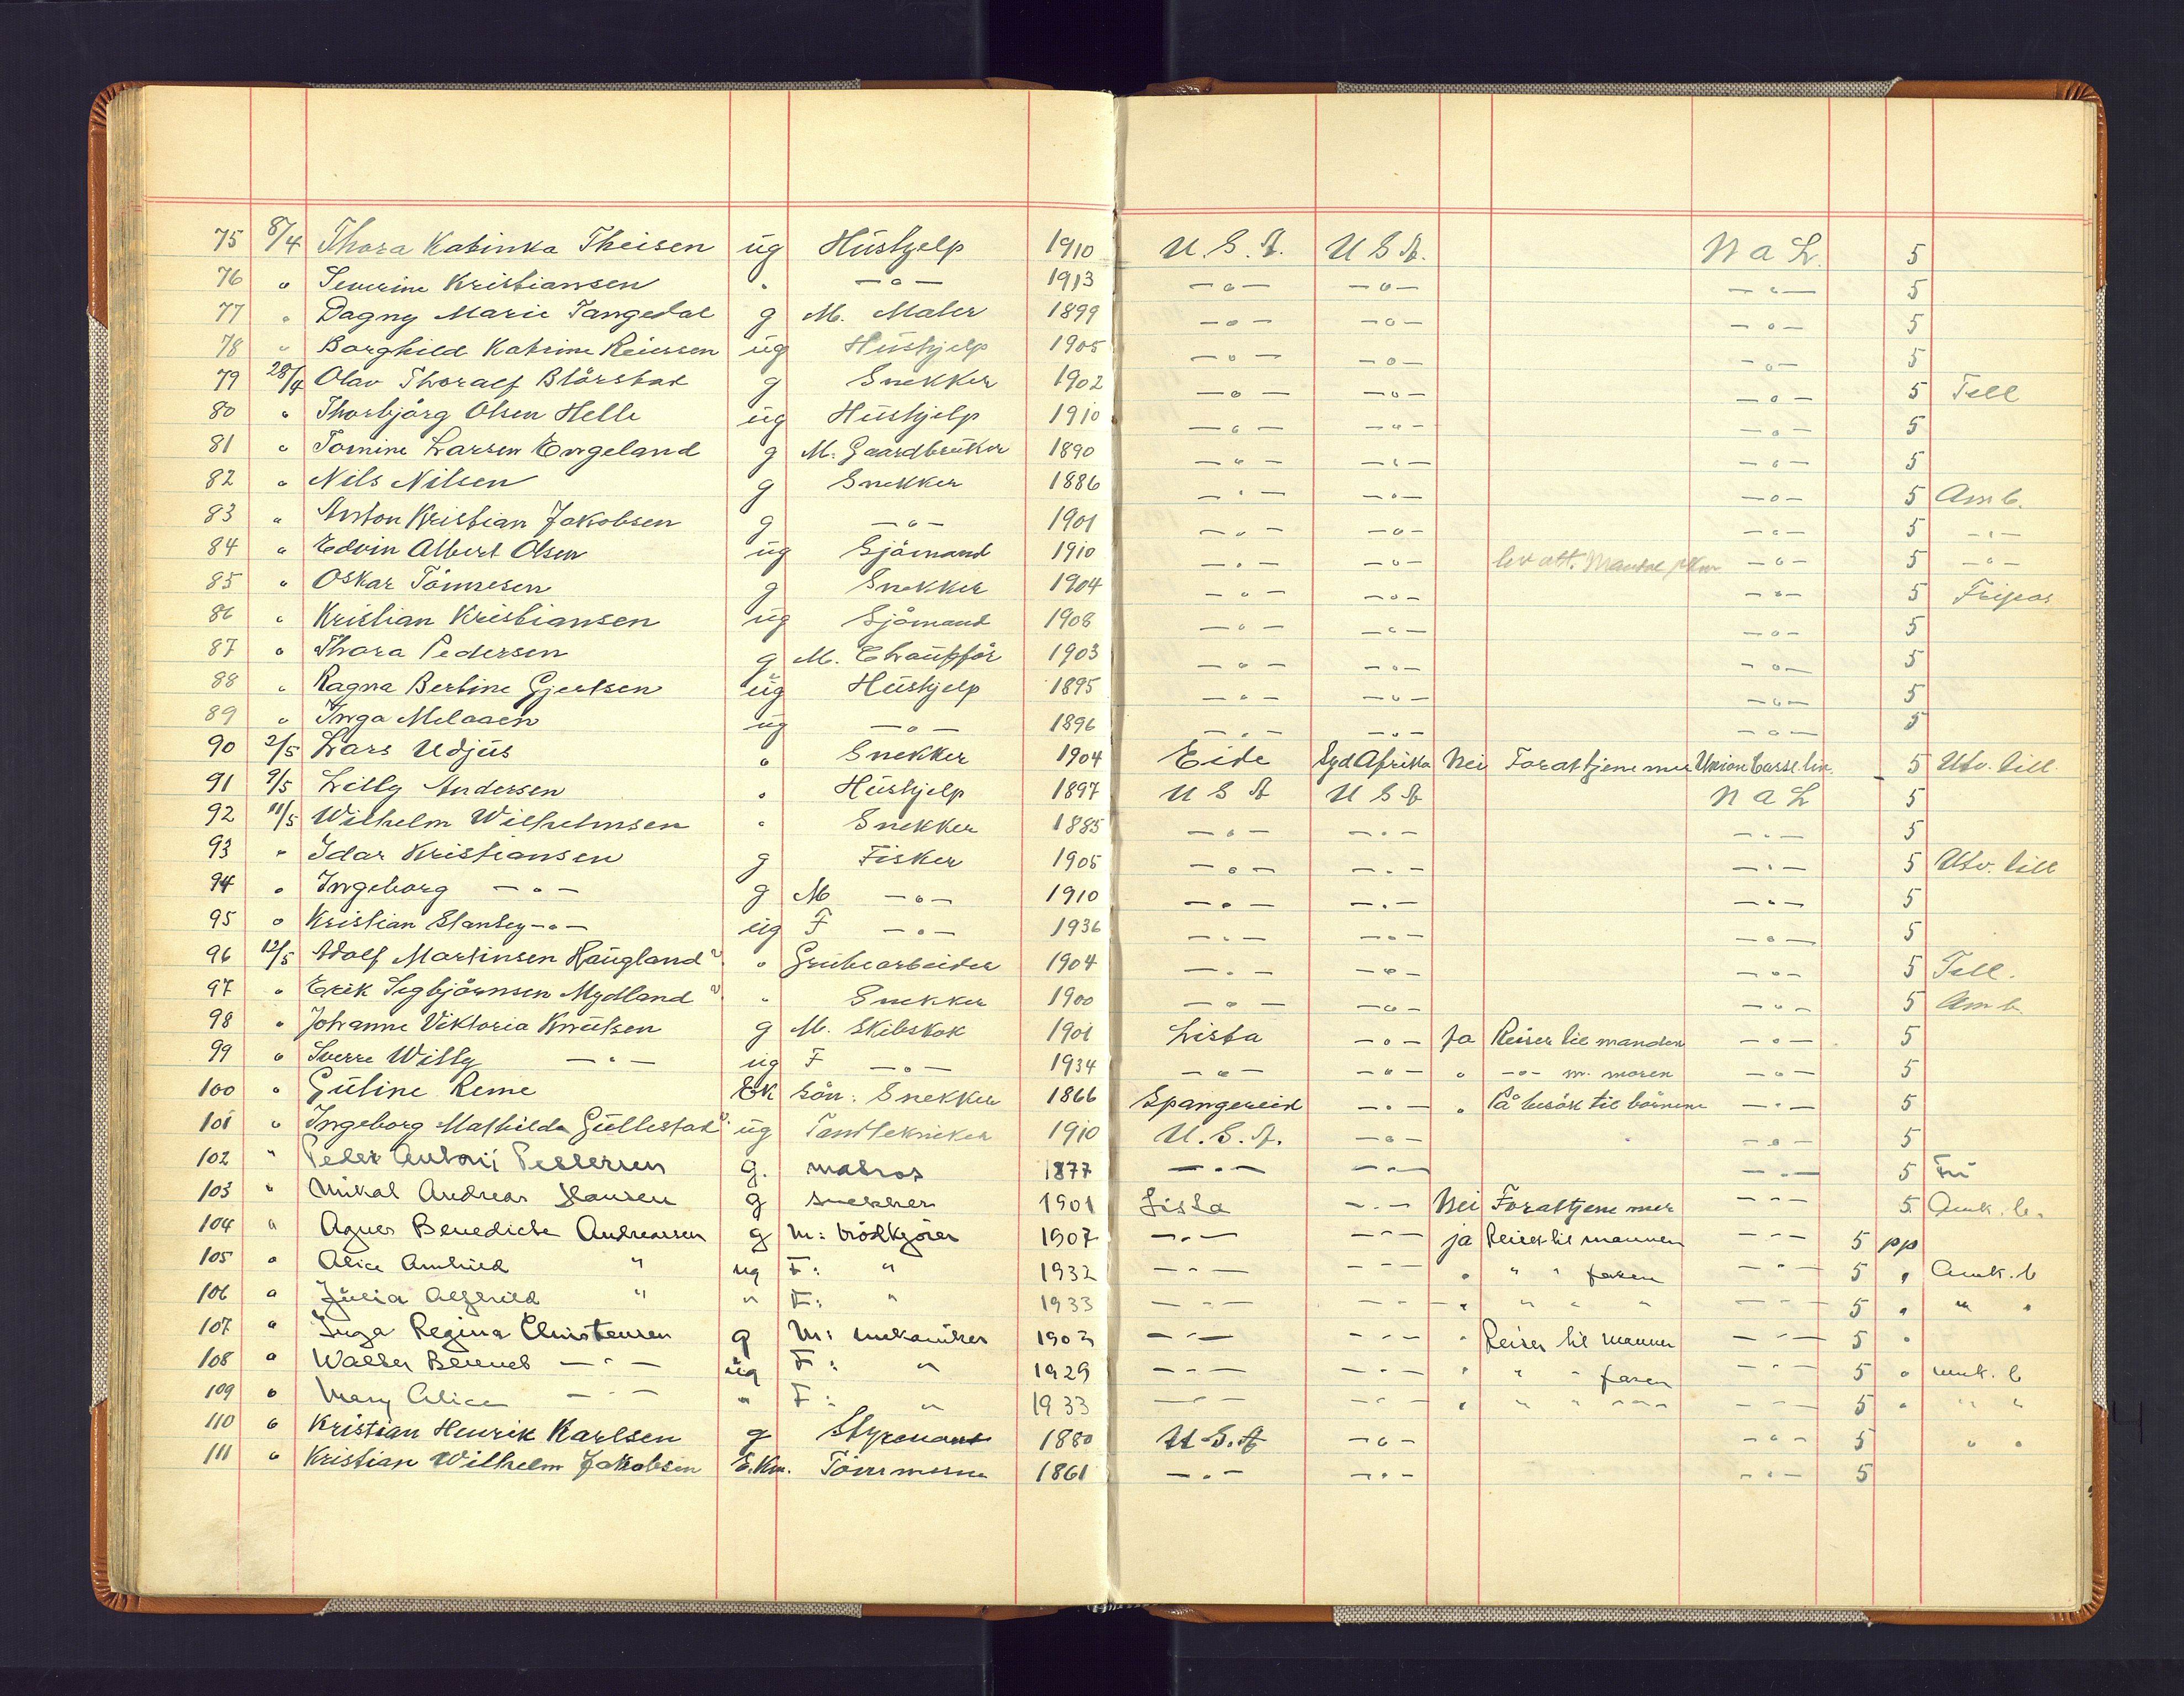 75 8/4 Thora Katinka Theisen ug Hüshjelp 1910 U.S.A. U S A. N a L. 5
76 " Severine Kristiansen " —"— 1913 —"— —"— —"— 5
77 " Dagny Marie Tangedal g M. Maler 1899 —"— —"— —"— 5
78 " Borghild Katrine Reiersen üg Hüshjelp 1905 —"— —"— —"— 5
79 28/4 Olav Thoralf Blörstad g Snekker 1902 —"— —"— —"— 5 Till
80 " Thorbjörg Olsen Helle üg Hüshjelp 1910 —"— —"— —"— 5
81 " Tomine Larsen Engeland g M. Gaardbrüker 1890 —"— —"— —"— 5
82 " Nils Nilsen g Snekker 1886 —"— —"— —"— 5 Am b.
83 " Anton Kristian Jakobsen g —"— 1901 —"— —"— —"— 5 —"—
84 " Edvin Albert Olsen üg Sjömand 1910 —"— —"— Mandal —"— 5 —"—
85 " Oskar Tönnesen g Snekker 1904 —"— —"— —"— 5 Fripas
86 " Kristian Kristiansen üg Sjömand 1908 —"— —"— —"— 5
87 " Thora Pedersen g M. Chaüfför 1903 —"— —"— —"— 5
88 " Ragna Bertine Gjertsen üg Hüshjelp 1895 —"— —"— —"— 5
89 " Inga Melaaen üg —"— 1896 —"— —"— —"— 5
90 2/5 Lars Udjüs " Snekker 1904 Eide Syd Afrika Nei For at tjene mer Union Castl. lin. 5 Utv. till.
91 9/5 Lilly Andersen " Hüshjelp 1897 U S A U S A N a L 5
92 11/5 Wilhelm Wilhelmsen " Snekker 1885 —"— —"— —"— 5
93 " Idar Kristiansen g Fisker 1905 —"— —"— —"— 5 Utv. till
94 " Ingeborg —"— g M —"— 1910 —"— —"— —"— 5
95 " Kristian Stanley —"— üg F —"— 1936 —"— —"— —"— 5
96 12/5 Adolf Martinsen Haügland " Grübearbeider 1904 —"— —"— —"— 5 Till.
97 " Erik Sigbjörnsen Mydland " Snekker 1900 —"— —"— —"— 5 Am b.
98 " Johanne Viktoria Knütsen g M. Skibskok 1901 Lista —"— Ja Reiser til manden —"— 5
99 " Sverre Willy —"— üg F —"— 1934 —"— —"— " —"— m. moren —"— 5
100 " Güline Reme EK sön. Snekker 1866 Spangereid —"— " På besök til börnene —"— 5
101 " Ingeborg Mathilde Güllestad üg Tandtekniker 1910 U.S.A. —"— —"— 5
102 " Peder Antoni Pettersen g. matros 1877 —"— —"— —"— 5 Fri
103 " Mikal Andreas Hansen g snekker 1901 Lista —"— Nei For at tjene mer —"— 5 Amk. b.
104 " Agnes Benedicte Andreassen g M: brödkjörer 1907 —"— —"— ja Reiser til mannen —"— 5 pp
105 " Alice Amhild " ug F: " 1932 —"— —"— " " " faren —"— 5 " Amk. b
106 " Jülia Alfhild " " F: " 1933 —"— —"— " " " " —"— 5 " " "
107 " Inga Regina Christensen g M: mekaniker 1903 —"— —"— " Reiser til mannen —"— 5 "
108 " Walter Bennet —"— üg F: " 1929 —"— —"— " " " faren —"— 5 " amk. b
109 " Mary Alice —"— " F: " 1933 —"— —"— " " " —"— —"— 5 " " "
110 " Kristian Henrik Karlsen g Styrmand 1880 U.S.A —"— —"— 5 " "
111 " Kristian Wilhelm Jakobsen E.Km. Tömmerm 1861 —"— —"— —"— 5